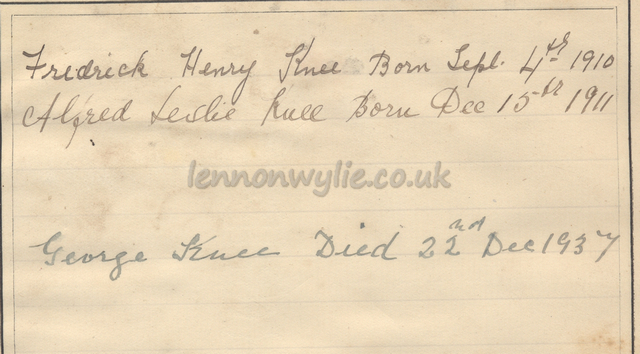 Fredrick Henry Knee Born Sept. 4th 1910
Alfred Leslie Knee Born Dec 15th 1911
lennonwylie.co.uk
George Knee Died 22nd Dec 1937